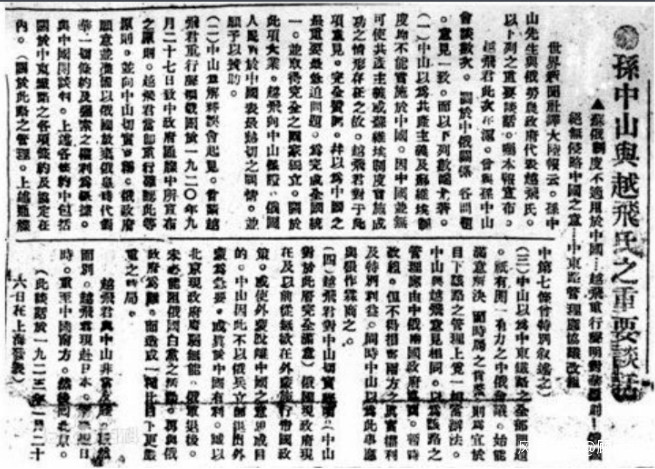 孫中山與越飛氏之重要談話
▲蘇俄制度不適用於中國…越飛重行聲明對華原則！
絕無侵略中國之意—中東路管理應協議改組
世界新聞社譯大陸報云。孫中
山先生與俄勞農政府代表越飛氏。
以下列之重要談話。囑本報宣布。
越飛君此次在滬。曾與孫中山
會談數次。關於中俄關係各問題
。意見一致。而以下列數端尤著。
（一）中山以為共產主義及蘇維埃制
度均不能實施於中國。因中國並無
可使共產主義或蘇維埃制度實施成
功之情形存在之故。越飛君對于此
項意見。完全贊同。并以為中國之
最重要最急迫問題。為完成全國統
一。並取得完全之國家獨立。關於
此項大業。越飛向中山保證。俄國
人民對於中國表最熱切之同情。並
願予以贊助。
（二）中山為解釋誤會起見。曾請越
飛君重行聲明俄國於一九二〇年九
月二十七日致中政府通牒中所宣布
之原則。越飛君當即重行確認此等
原則。並向中山切實聲稱。俄政府
願意並擬以俄國放棄俄皇時代對
華一切條約及強索之權利為根據。
與中國開談判。上述各條約中包括
關於中東鐵路之各項條約及協定在
內。（關於此點之管理。上述通牒
中第七條曾特別敘述之）
（三）中山以為中東鐵路之全部問題
。祇有開一有力之中俄會議。始能
滿意解決。而時局之實際則為宜於
目下該路之管理上覓一相當辦法。
中山與越飛意見相同。以為該路之
管理應由中俄兩國政府協商。暫時
改組。但不得損害兩方之真實權利
及特別利益。同時中山以為此事應
與張作霖商之。
（四）越飛君對中山切實聲稱（中山
對於此層完全滿意）俄國現政府現
在及以前從無欲在外蒙施行帝國政
策。或使外蒙脫離中國之意思或目
的。中山因此不以俄兵立即退出外
蒙為急要。或真於中國有利。誠以
北京現政府庸弱無能。俄軍退後。
未必能阻俄國白黨之活動。再與俄
政府為難。而造成一種比目下更嚴
重之時局。
越飛君與中山非常友睦。
面別。越飛君現赴日本。
時。重至中國南方。然後回北京。
（此談話於一九二三年一月二十
六日在上海發表）